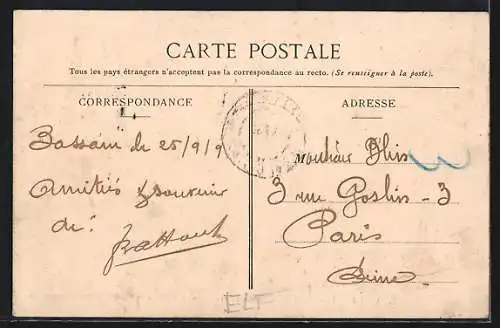 CARTE POSTALE
Tous les pays étrangers n'acceptent pas la correspondance au recto. (Se renseigner à la poste).
CORRESPONDANCE
ADRESSE
Bassam le 25/9/9
Amitiés & souvenir
de:
Monsieur
3 rue - 3
Paris
Seine
ELF